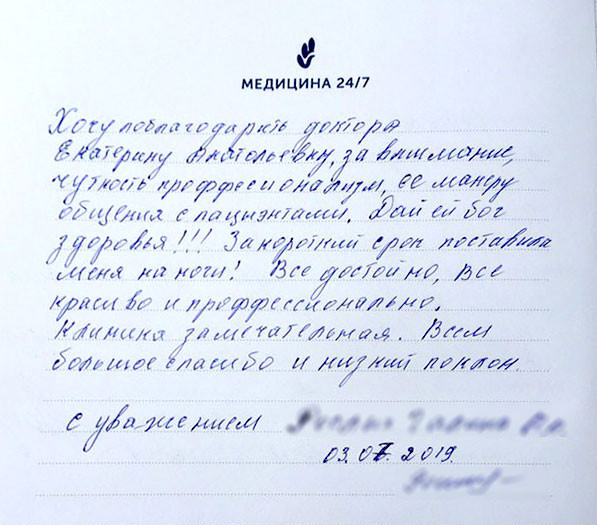 МЕДИЦИНА 24/7
Хочу поблагодарить доктора
Екатерину Анатольевну, за внимание,
чуткость проффесионализм, ее манеру
общения с пациэнтами. Дай ей бог
здоровья!!! За короткий срок поставила
меня на ноги! Все достойно, все
красиво и проффессионально.
Клиника замечательная. Всем
большое спасибо и низкий поклон
с уважением
2019.